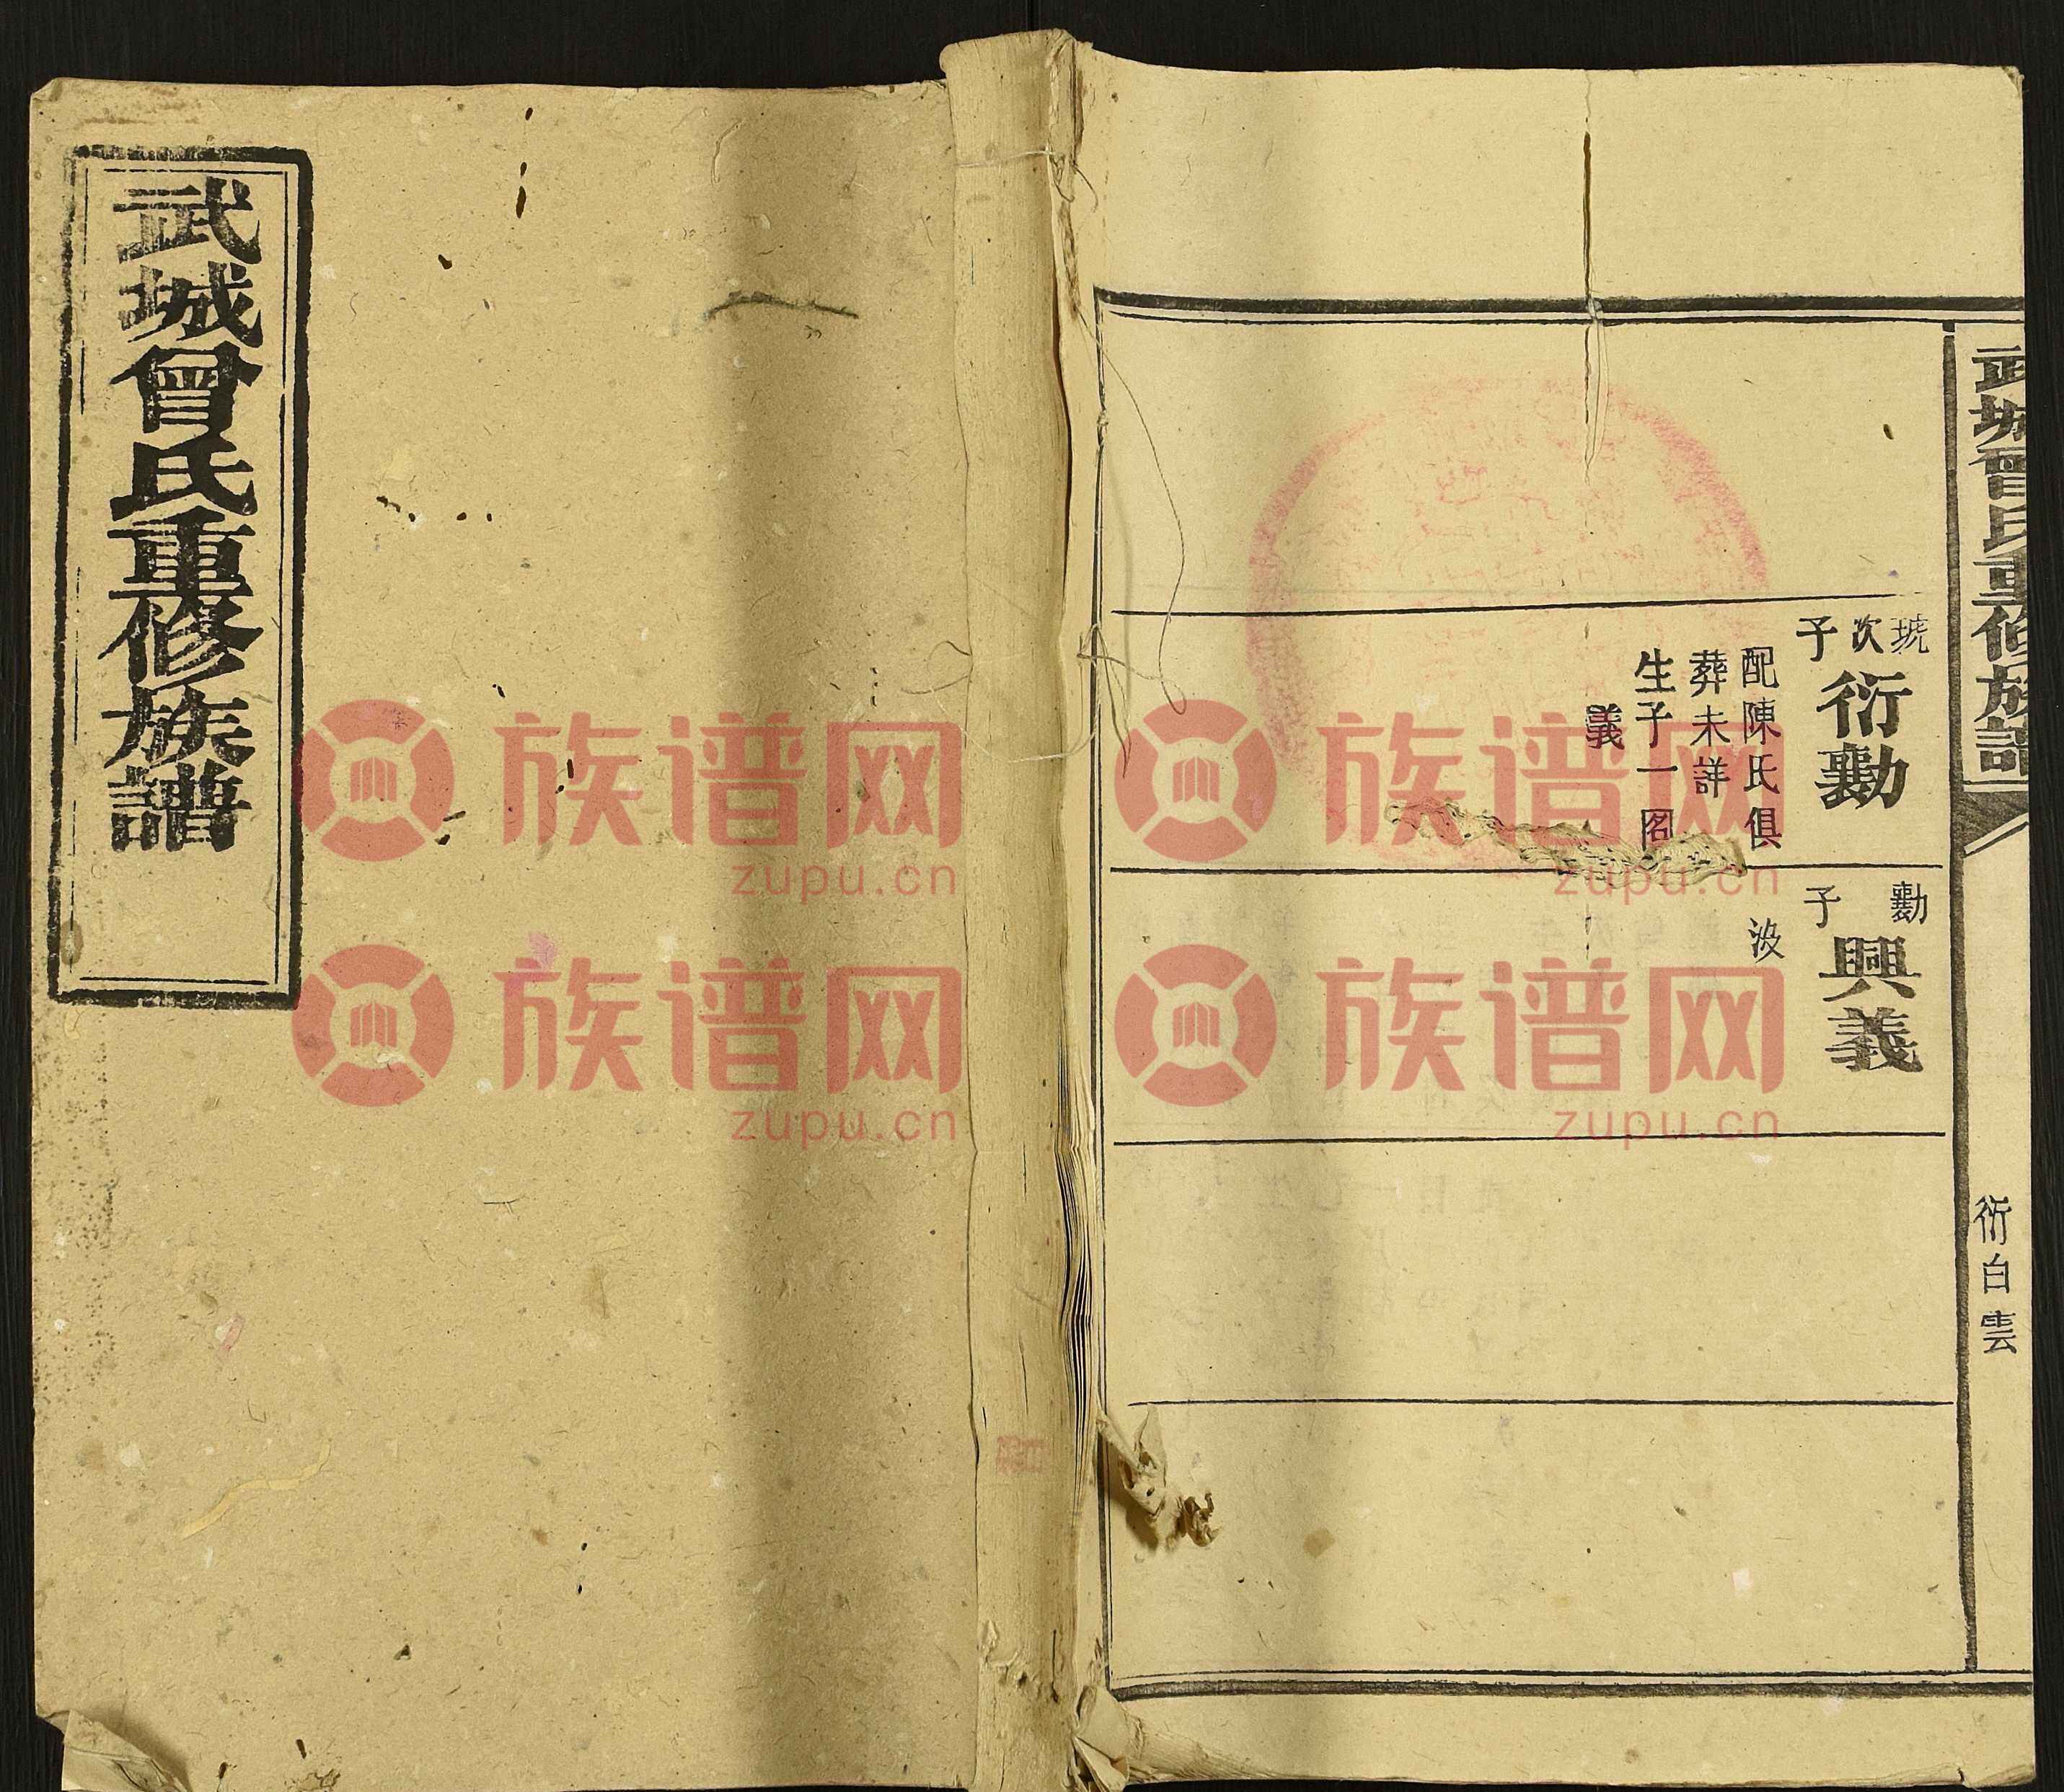 武城曾氏重修族譜
衍白雲
琥次子
衍勷
配陳氏俱
葬未詳
生子一名
義
勷子
興義
没
武城曾氏重修族譜
族谱网
zupu.cn
族谱网
zupu.cn
族谱网
zupu.cn
族谱网
zupu.cn